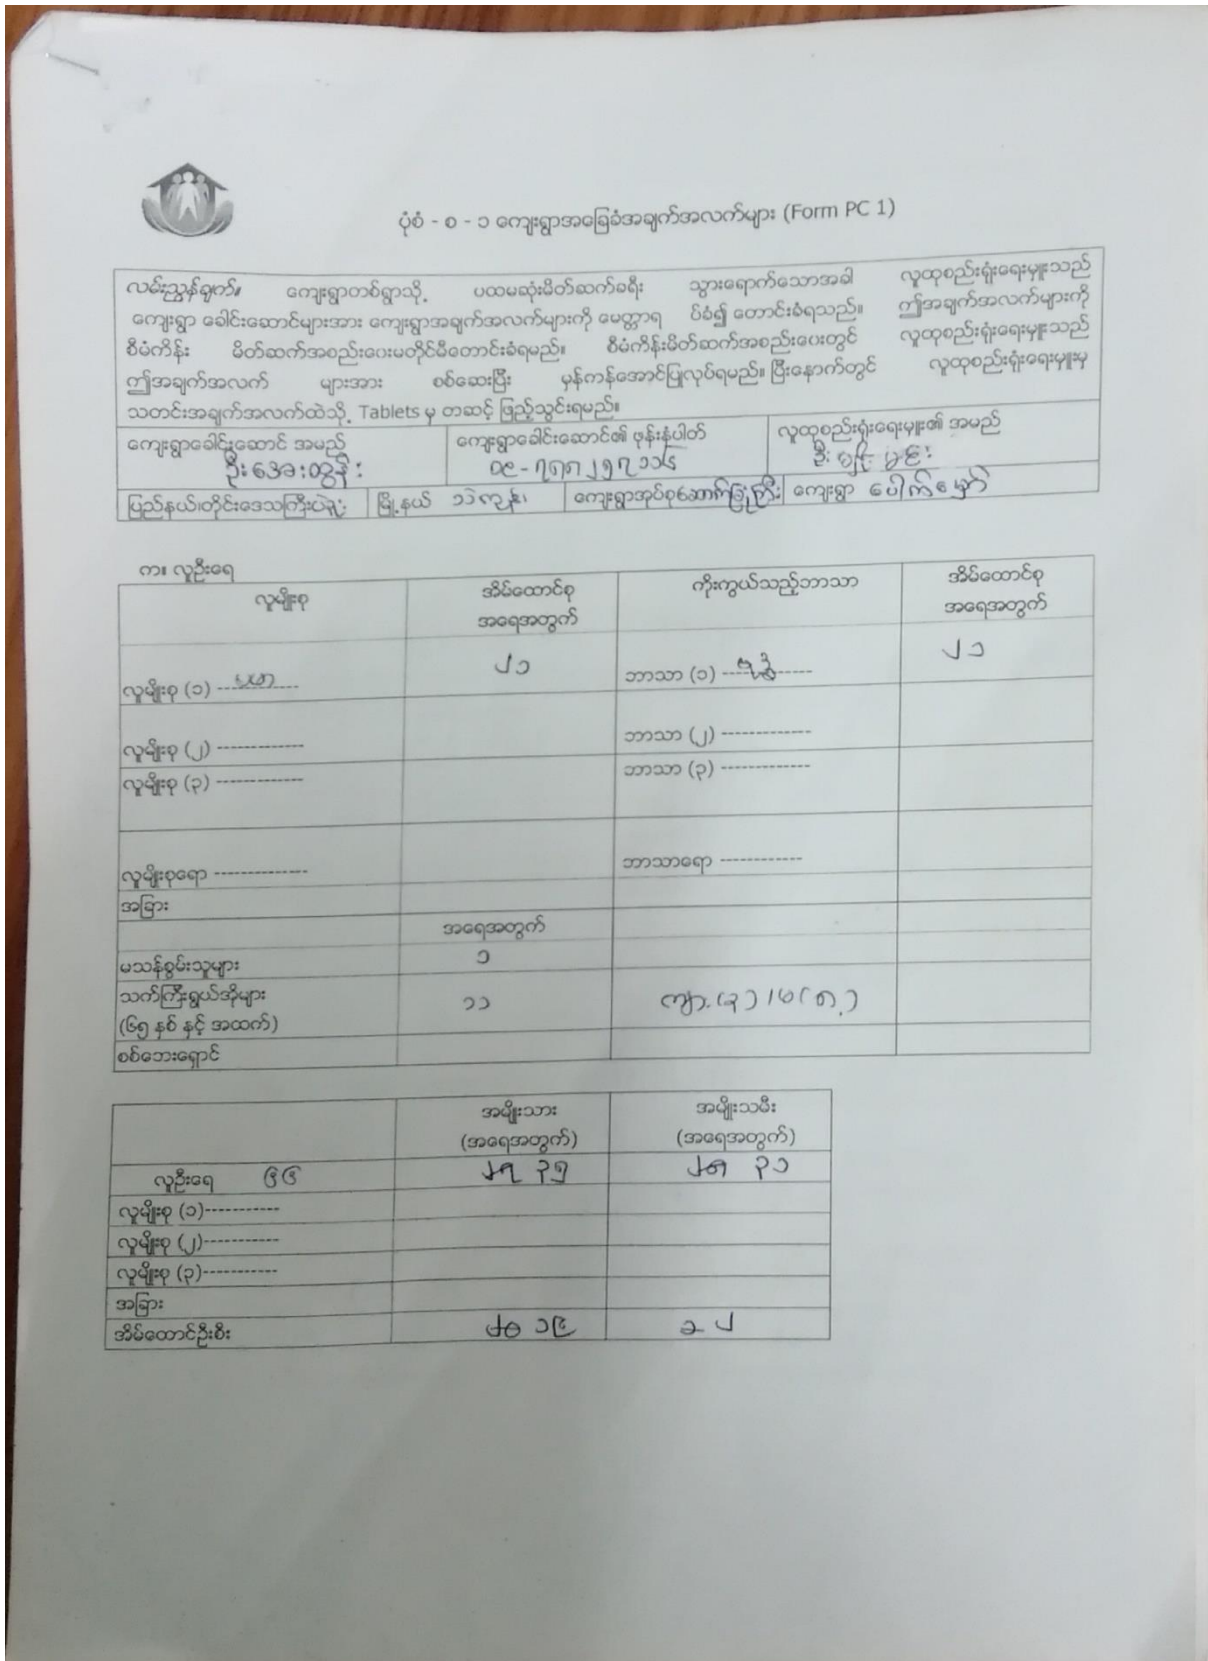 ပုံစံ - စ - ၁ ကျေးရွာအခြေခံအချက်အလက်များ (Form PC 1)
လမ်းညွှန်ချက်။ ကျေးရွာတစ်ရွာသို့ ပထမဆုံးမိတ်ဆက်ခရီး သွားရောက်သောအခါ လူထုစည်းရုံးရေးမှူးသည်
ကျေးရွာ ခေါင်းဆောင်များအား ကျေးရွာအချက်အလက်များကို မေတ္တာရ ပ်ခံ၍ တောင်းခံရသည်။ ဤအချက်အလက်များကို
စီမံကိန်း မိတ်ဆက်အစည်းဝေးမတိုင်မီတောင်းခံရမည်။ စီမံကိန်းမိတ်ဆက်အစည်းဝေးတွင် လူထုစည်းရုံးရေးမှူးသည်
ဤအချက်အလက် များအား စစ်ဆေးပြီး မှန်ကန်အောင်ပြုလုပ်ရမည်။ ပြီးနောက်တွင် လူထုစည်းရုံးရေးမှူးမှ
သတင်းအချက်အလက်ထဲသို့ Tablets မှ တဆင့် ဖြည့်သွင်းရမည်။
ကျေးရွာခေါင်းဆောင် အမည် ကျေးရွာခေါင်းဆောင်၏ ဖုန်းနံပါတ် လူထုစည်းရုံးရေးမှူး၏ အမည်
ဦးအေးထွန်း ဦး
ပြည်နယ်၊တိုင်းဒေသကြီး ပဲခူး မြို့နယ် ကျေးရွာအုပ်စု ကျေးရွာ
က။ လူဦးရေ
လူမျိုးစု အိမ်ထောင်စု အရေအတွက် ကိုးကွယ်သည့်ဘာသာ အိမ်ထောင်စု အရေအတွက်
လူမျိုးစု (၁) ----------- ၂၁ ဘာသာ (၁) ----------- ၂၁
လူမျိုးစု (၂) ------------ ဘာသာ (၂) ------------
လူမျိုးစု (၃) ------------ ဘာသာ (၃) ------------
လူမျိုးစုရော ------------- ဘာသာရော -----------
အခြား
အရေအတွက်
မသန်စွမ်းသူများ ၁
သက်ကြီးရွယ်အိုများ
(၆၅ နှစ် နှင့် အထက်) ၁၁ ကျား (၃) / မ (၈)
စစ်ဘေးရှောင်
အမျိုးသား အမျိုးသမီး
(အရေအတွက်) (အရေအတွက်)
လူဦးရေ ၆၆ ၃၅ ၃၁
လူမျိုးစု (၁)-----------
လူမျိုးစု (၂)-----------
လူမျိုးစု (၃)-----------
အခြား
အိမ်ထောင်ဦးစီး ၁၉ ၂